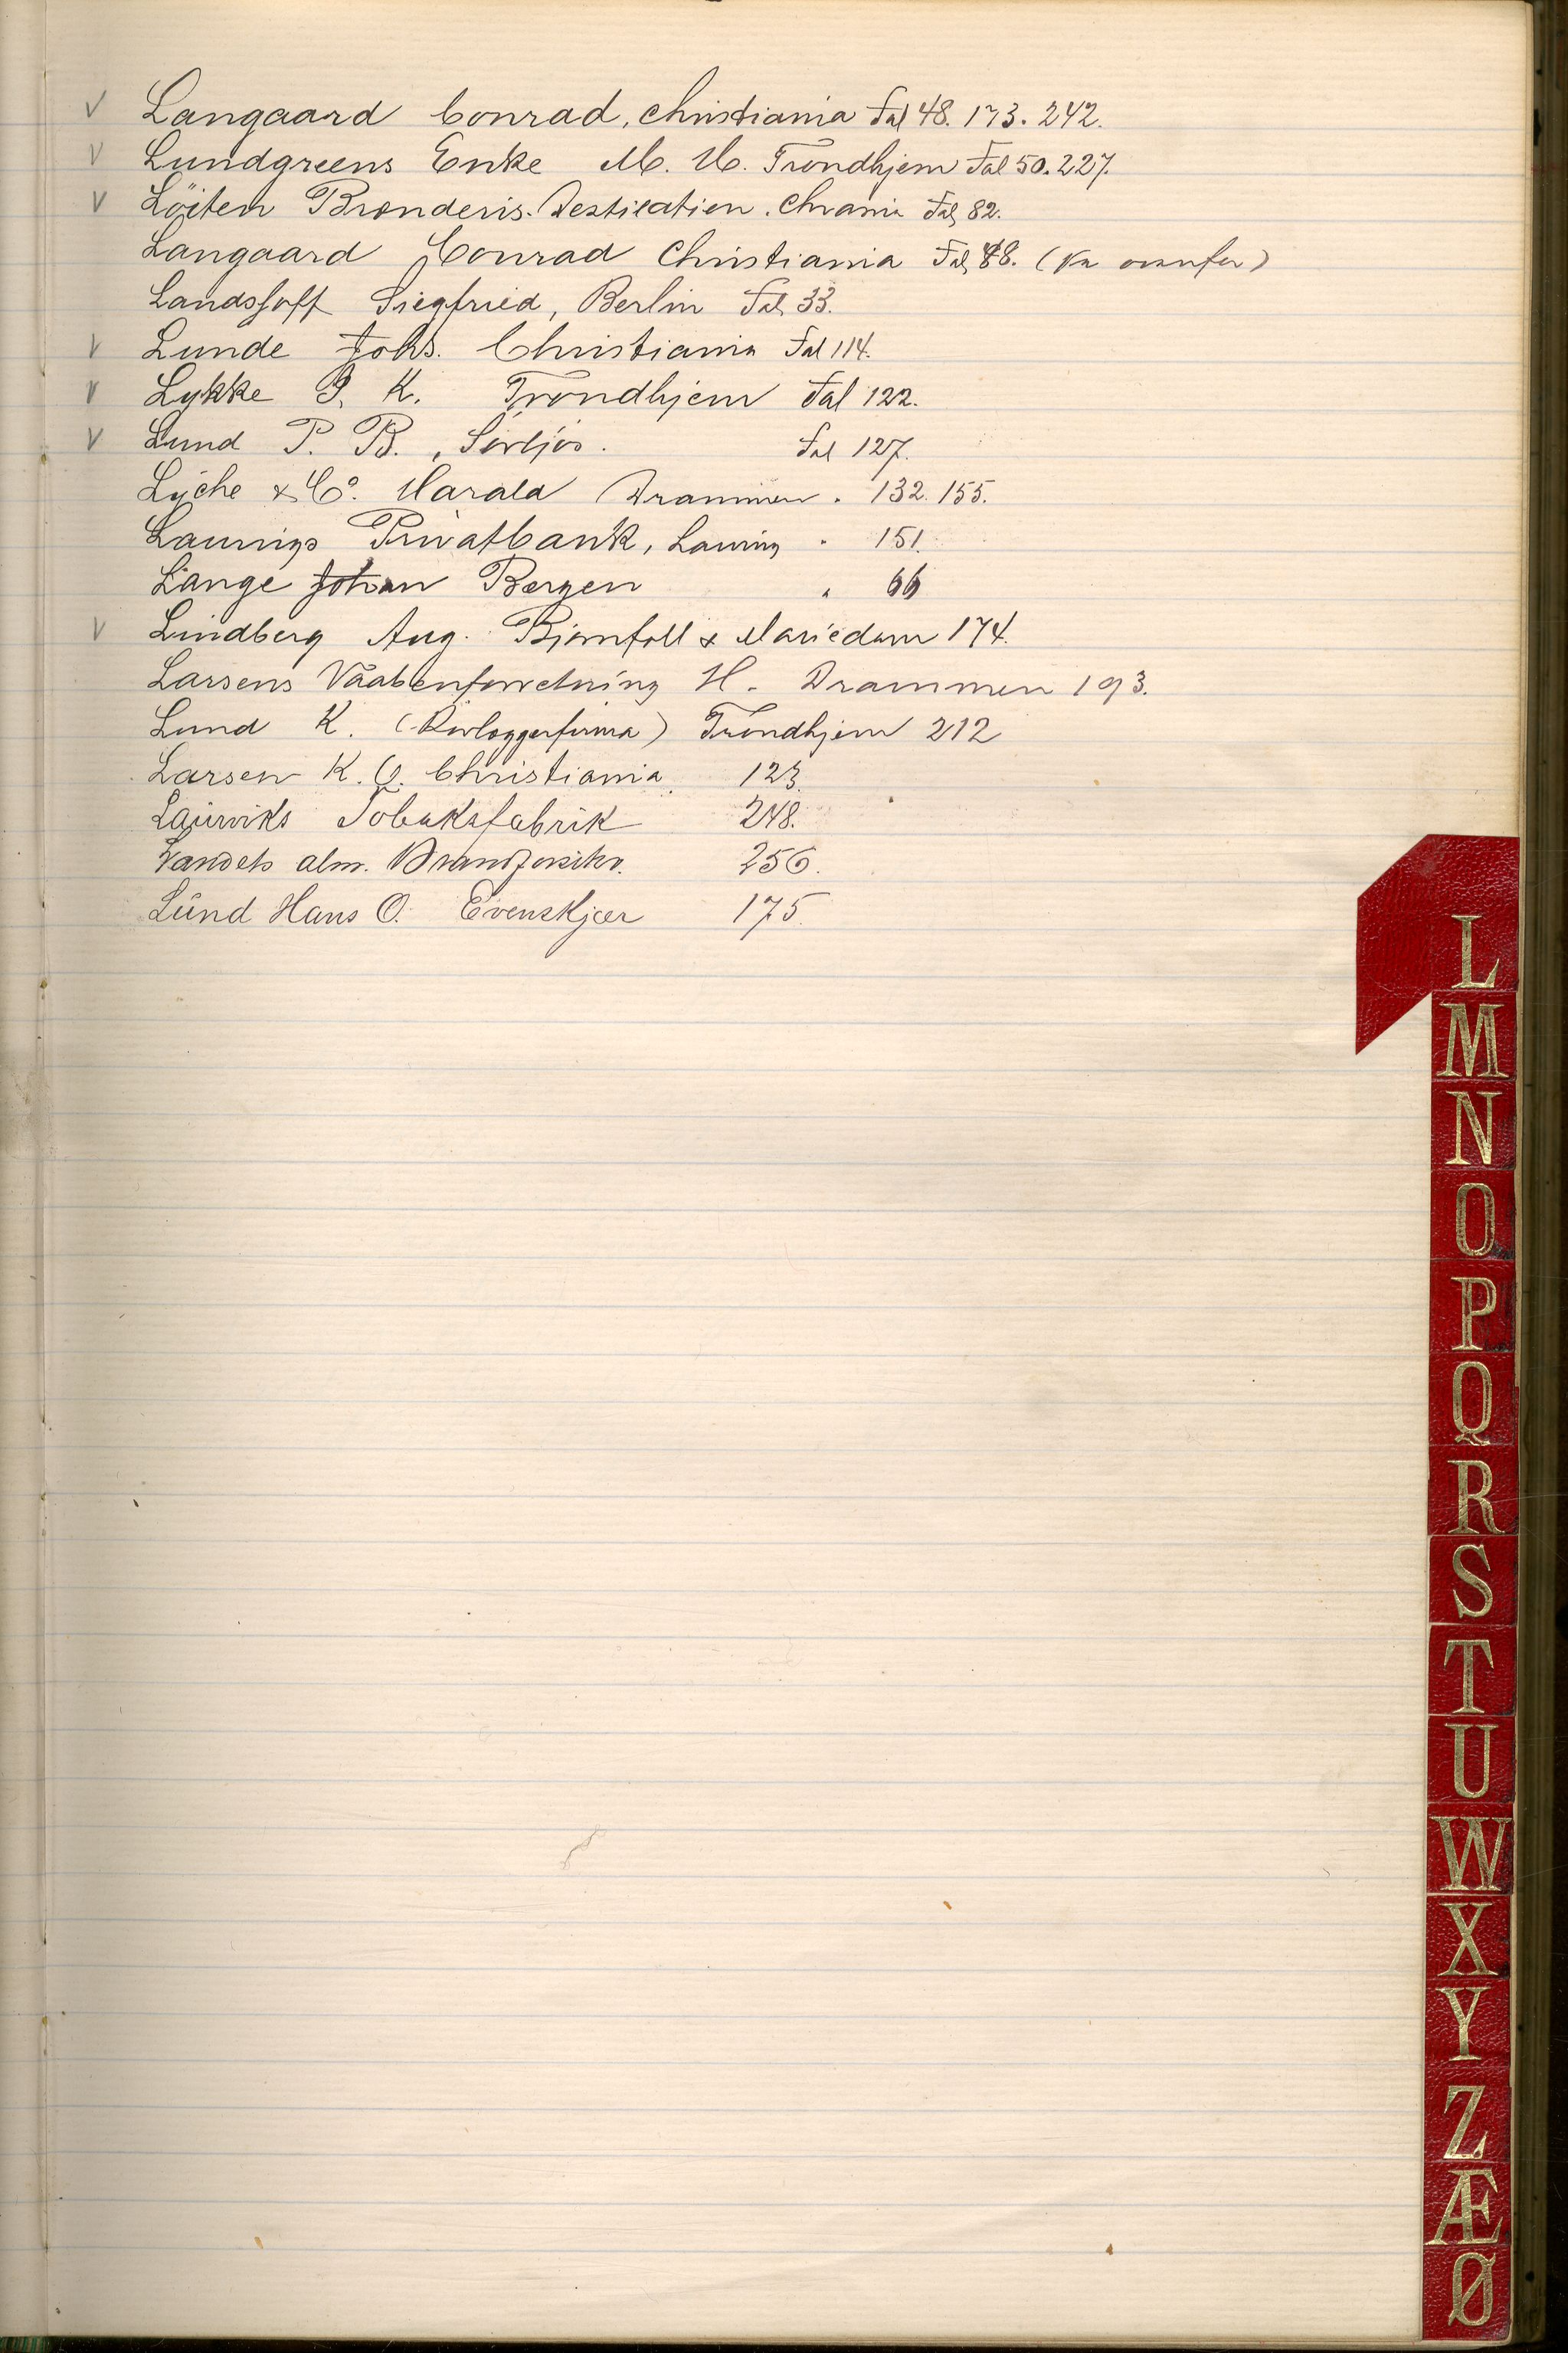 V Langaard Conrad, Christiania Fol 48. 173. 242.
V Lundgreens Enke M. H. Trondhjem Fol 50. 227.
V Löiten Brænderis. Destilation. Chrania Fol, 82.
Langaard Conrad Christiania Fol, 48. (
Landshoff Siegfried, Berlin Fol, 33.
V Lunde Johs. Christiania Fol 114.
V Lykke I. K. Trondhjem Fol 122.
V Lund P. B., Fol 127.
Lyche & Co. Harald Drammen " 132. 155.
Laurvigs Privatbank, Laurvig " 151.
Lange Johan Bergen " 66
V Lindberg Aug. Bjørnfoll & Mariedam 174.
Larsens Vaabenforretning H. Drammen 193.
Lund K. (Rørlæggerfirma) Trondhjem 212
Larsen K. O. Christiania 123.
Laurviks Tobaksfabrik 248.
Landets alm. Brandforsikr. 256.
Lund Hans O. Evenskjær 175.
L
M
N
O
P
Q
R
S
T
U
W
X
Y
Z
Æ
Ø